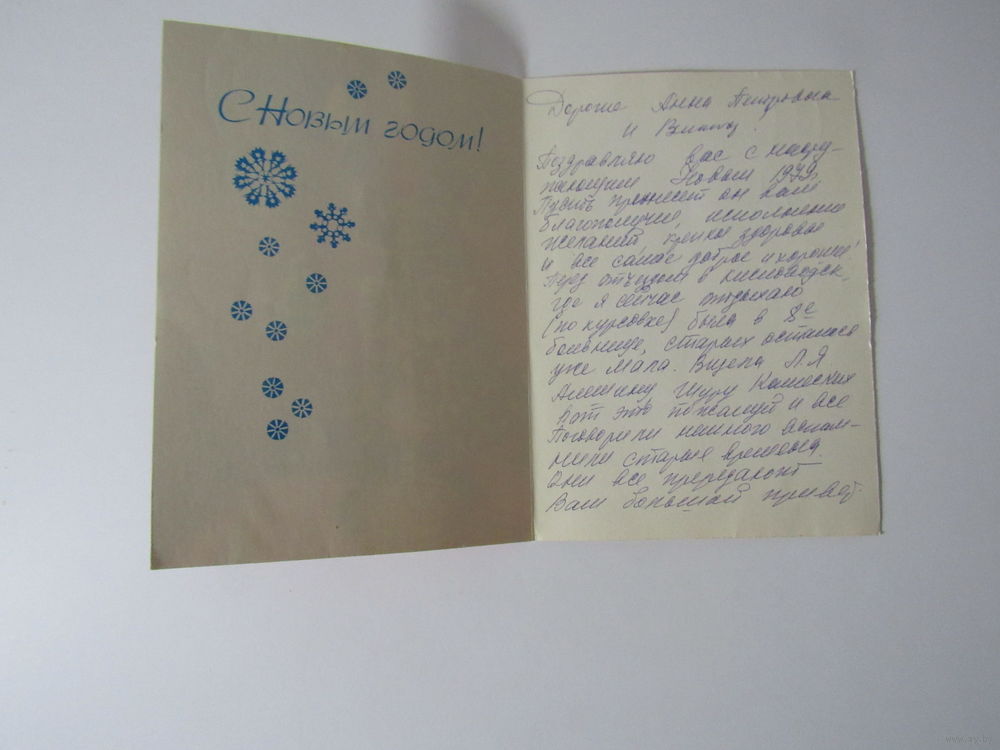 С Новым годом!
Дорогие Анна Петровна
и
Поздравляю Вас с насту-
пающим Новым 1979г.
Пусть принесет он Вам
благополучие, исполнение
желаний, крепкое здоровье
и все самое доброе и хорошее!
Перед отъездом в Кисловодск,
где я сейчас отдыхаю
(по курсовке) была в 8е
больнице, старых осталось
уже мало. Видела Л.Я
Алешину Шуру
Вот это пожалуй и все
Поговорили немного вспом-
нили старые времена.
Они все передают
Вам большой привет